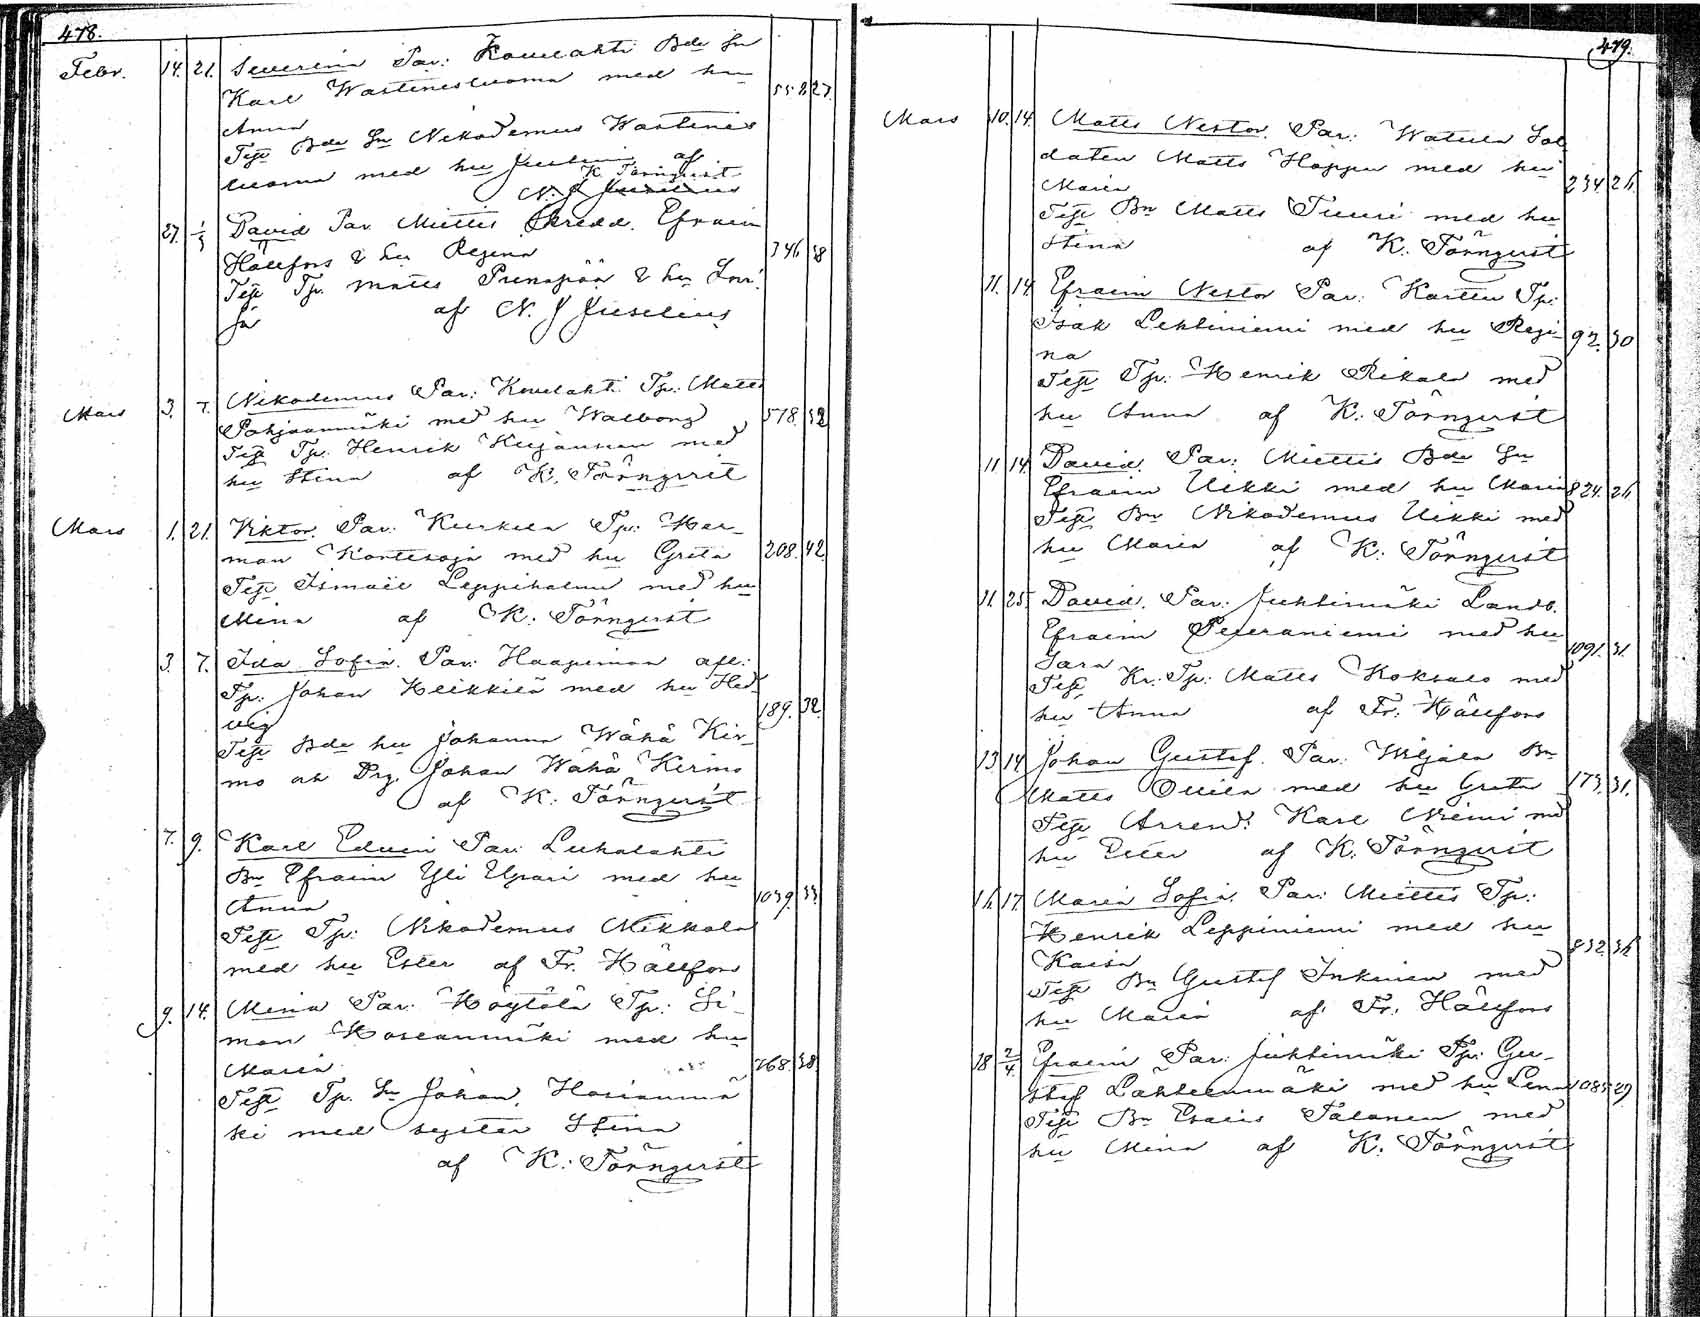 478.
Febr. 14. 21. Severina Par: Kouelahti Bde Sn
Karl Wastinesluoma med hu 558 27.
Anna
Test Bde Sn Nikodemus Wastines
luoma med hu Justina af
K. Törnqvist
N. J Juselius
27. 1/3 David Par Miettis Skredd. Efraim
Hällfors & hu Regina 346 38
Test Tp. Matts Prenspää & hu Lovi
sa af N. J Juselius
Mars 3. 7. Nikodemus Par: Kouelahti Tp: Matts
Pohjaanmäki med hu Walborg 518. 32
Test Tp: Henrik Kujansuu med
hu Stina af K. Törnqvist
Mars 1. 21. Viktor. Par: Kurkela Tp: Her-
man Kontesoja med hu Greta 208. 42.
Test Ismael Leppihalme med hu
Mina af K. Törnqvist
3. 7. Ida Sofia. Par: Haapimaa afl:
Tp: Johan Heikkilä med hu Hed
vig 189. 32.
Test Bde hu Johanna Wähä Kir-
mo och Drg. Johan Wähä Kirmo
af K. Törnqvist
7. 9. Karl Edvin Par: Luhalahti
Bn Efraim Yli Upari med hu
Anna 1039. 33.
Test Tp: Nikodemus Mikkola
med hu Ester af Fr. Hällfors
9. 14. Mina Par: Höytölä Tp: Si-
mon Koseanmäki med hu
Maria 268. 38.
Test Tp. Sn Johan Hosianmä
ki med syster Stina
af K. Törnqvist
479.
Mars 10. 14. Matts Nestor. Par: Watula Sol
daten Matts Hoppu med hu
Maria 234. 26
Test Bn Matts Tuuri med hu
Stina af K. Törnqvist
11. 14. Efraim Nestor Par: Karttu Tp:
Isak Lehtiniemi med hu Regi- 92. 30
na
Test Tp: Henrik Rikala med
hu Anna af K: Törnqvist
11 14. David. Par: Miettis Bde Sn
Efraim Uikki med hu Maria 824. 26
Test Bn Nikodemus Uikki med
hu Maria af K: Törnqvist
11. 25. David. Par: Juhtimäki Landb.
Efraim Peuraniemi med hu
Sara 1091. 31.
Test Kr: Tp: Matts Koksalo med
hu Anna af Fr: Hällfors
13 14. Johan Gustaf. Par: Wiljala Bn
Matts Ollila med hu Greta 173. 31.
Test Arrend: Karl Niemi md
hu Ester af K. Törnqvist
16 17. Maria Sofia. Par: Miettis Tp:
Henrik Leppiniemi med hu
Kaisa 832. 36
Test Bn Gustaf Inkinen med
hu Maria af Fr. Hällfors
18 2/4. Efraim Par: Juhtimäki Tp: Gu-
staf Lähteenmäki med hu Lena 1085 29
Test Bn Esaias Salonen med
hu Mina af K. Törnqvist